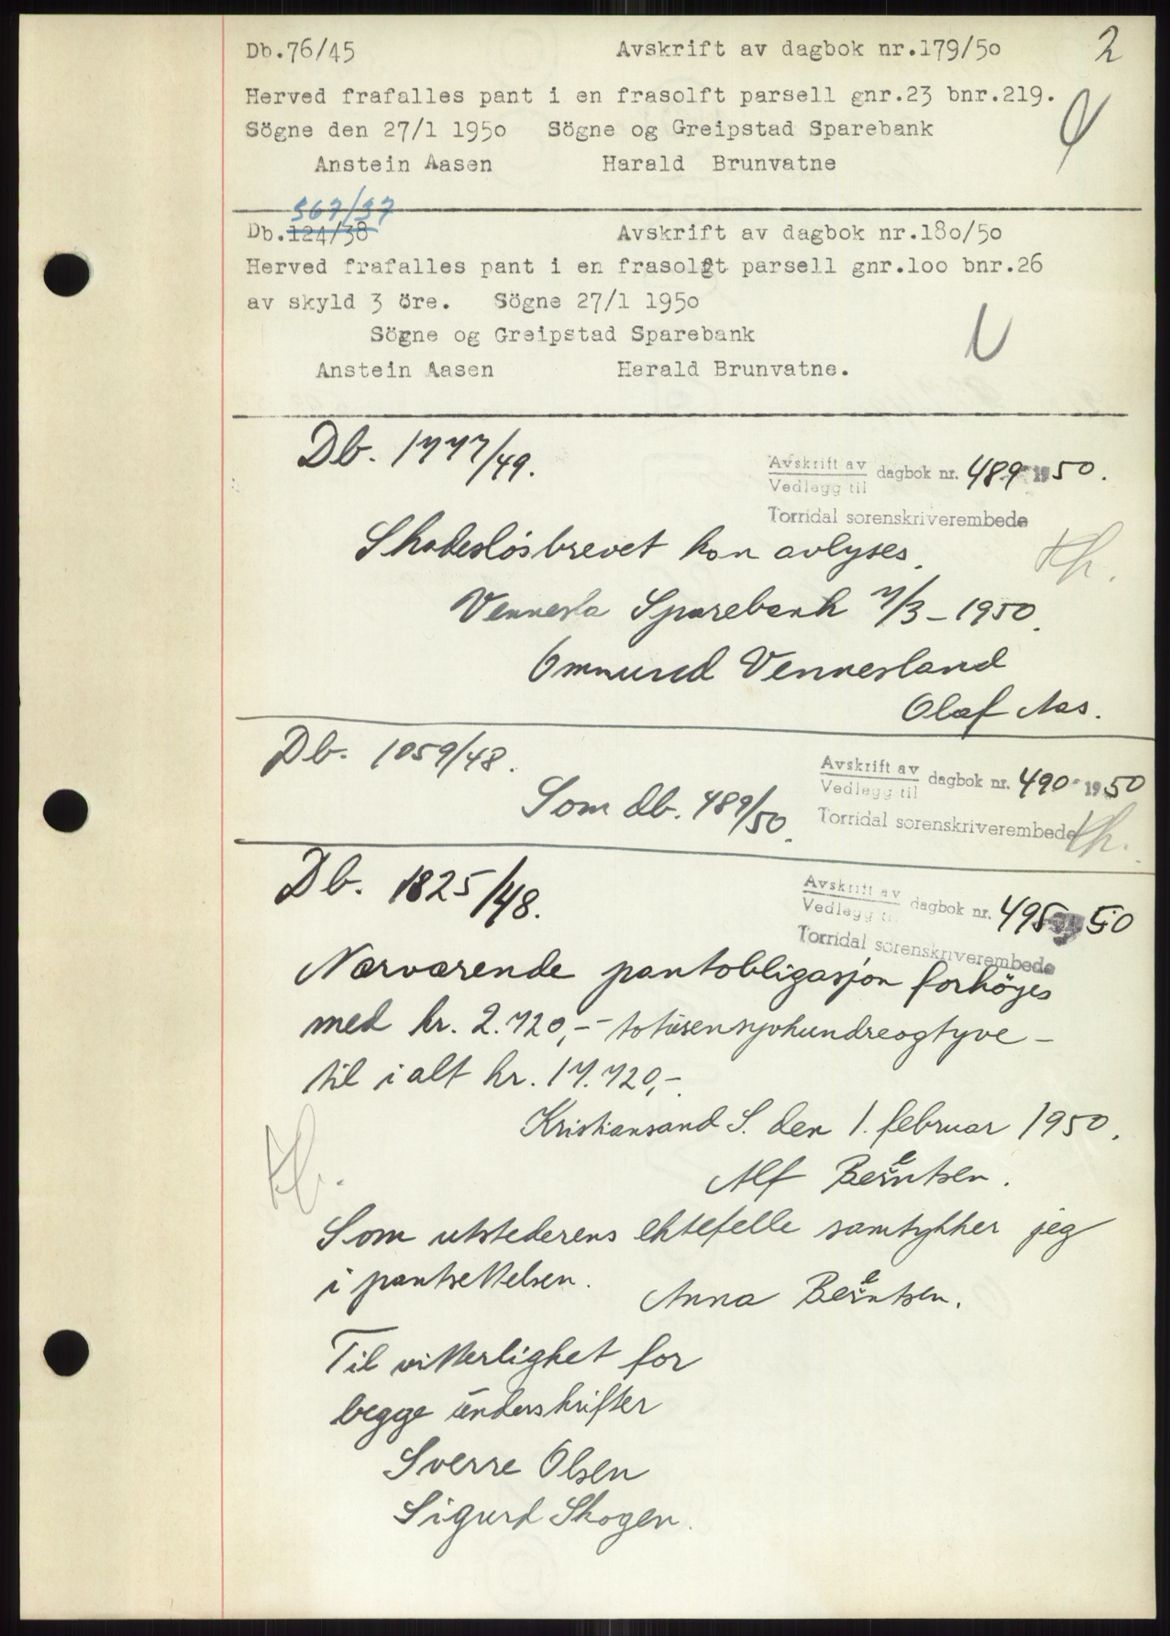 2
Db.76/45 Avskrift av dagbok nr.179/50
Herved frafalles pant i en frasolft parsell gnr.23 bnr.219.
Sögne den 27/1 1950 Sögne og Greipstad Sparebank
Anstein Aasen Harald Brunvatne
567/37
Db.124/38 Avskrift av dagbok nr.180/50
Herved frafalles pant i en frasolgt parsell gnr.100 bnr.26
av skyld 3 öre. Sögne 27/1 1950
Sögne og Greipstad Sparebank
Anstein Aasen Harald Brunvatne.
Db. 1777/49.
Avskrift av
Vedlegg til dagbok nr. 489 1950.
Torridal sorenskriverembede
Skadesløsbrevet kan avlyses.
Vennesla Sparebank 7/3-1950.
Ommund Vennesland
Olaf Aas.
Db. 1059/48.
Avskrift av
Vedlegg til dagbok nr. 490 1950
Torridal sorenskriverembede
Som db. 489/50.
Db. 1825/48.
Avskrift av
Vedlegg til dagbok nr. 495 50
Torridal sorenskriverembede
Nærværende pantobligasjon forhöyes
med kr. 2.720,- - totusensyvhundreogtyve -
til i alt kr. 17.720,-
Kristiansand S. den 1. februar 1950.
Alf Berentsen.
Som utstederens ektefelle samtykker jeg
i pantsettelsen. Anna Berentsen.
Til vitterlighet for
begge underskrifter
Sverre Olsen
Sigurd Skogen.